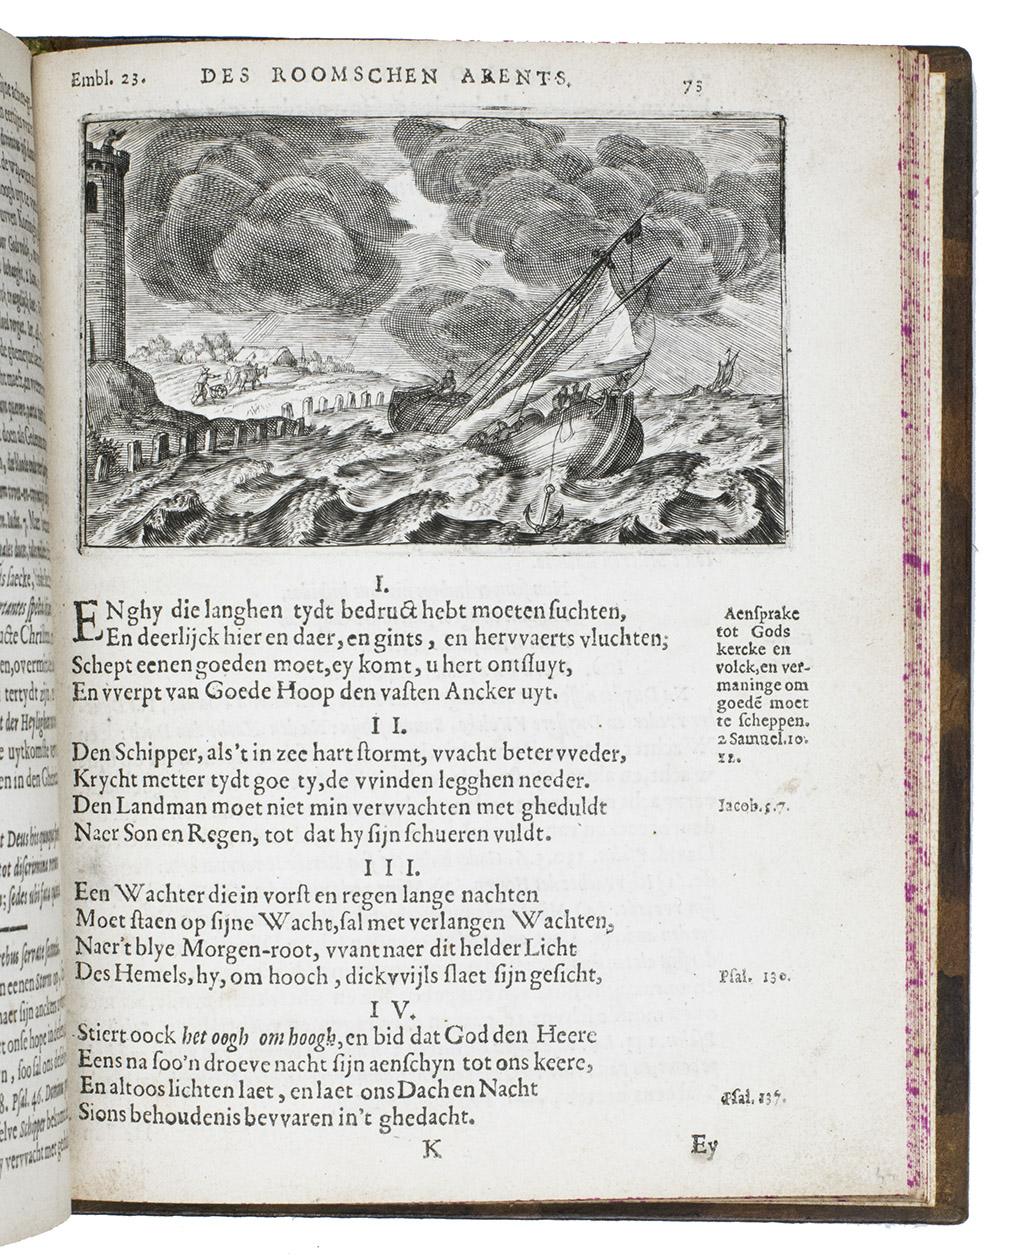 Embl. 23. DES ROOMSCHEN ARENTS. 73
I.
ENghy die langhen tydt bedruckt hebt moeten suchten,
En deerlijck hier en daer, en gints, en hervvaerts vluchten;
Schept eenen goeden moet, ey komt, u hert ontsluyt,
En vverpt van Goede Hoop den vasten Ancker uyt.
Aensprake
tot Gods
kercke en
volck, en ver-
maninge om
goedē moet
te scheppen.
2 Samuel. 10.
12.
II.
Den Schipper, als't in zee hart stormt, vvacht beter vveder,
Krycht metter tydt goe ty, de vvinden legghen needer.
Den Landman moet niet min vervvachten met gheduldt
Naer Son en Regen, tot dat hy sijn schueren vuldt.
Jacob. 5. 7.
III.
Een Wachter die in vorst en regen lange nachten
Moet staen op sijne Wacht, sal met verlangen Wachten,
Naer't blye Morgen-root, vvant naer dit helder Licht
Des Hemels, hy, om hooch, dickvvijls slaet sijn gesicht,
Psal. 130.
IV.
Stiert oock het oogh om hoogh, en bid dat God den Heere
Eens na soo'n droeve nacht sijn aenschyn tot ons keere,
En altoos lichten laet, en laet ons Dach en Nacht
Sions behoudenis bevvaren in't ghedacht.
Psal. 137.
K
Ey